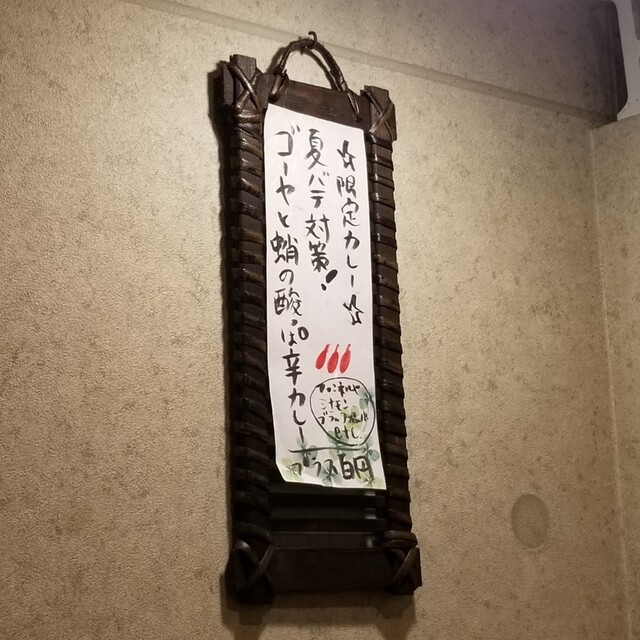 ☆限定カレー☆
夏バテ対策！
ゴーヤと蛸の酸っぱ辛カレー
etc.
プラス百円